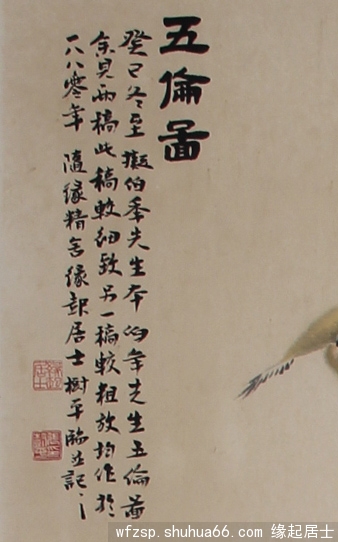 五倫啚
癸巳冬至擬伯年先生本伯年先生五倫啚
余見兩稿此稿較細致另一稿較粗放均作於
一八八零年隨緣精舍緣起居士樹平臨並記
wfzsp.shuhua66.com 缘起居士